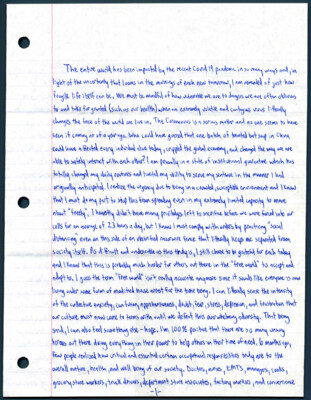 The entire world has been impacted by the recent Covid 19 pandemic in so many ways and, in
light of the uncertainty that looms in the musings of each new tomorrow, I am reminded of just how
fragile life itself can be. We must be mindful of how vulnerable we are to dangers we are often oblivious
to and take for granted (such as our health) when an extremely volatile and contagious virus literally
changes the face of the world we live in. The Coronavirus is a serious matter and no one seems to have
seen it coming
could have affected every individual alive today, cripple the global economy, and change the way we are
able to safely interact with each other? I am personally in a state of institutional quarantine which has
totally changed my daily routines and limited my ability to serve my sentence in the manner I had
originally anticipated. I realize the urgency due to being in a crowded, susceptible environment and I know
that I must do my part to stop this from spreading even in my extremely limited capacity to move
about "freely". I honestly didn't have many privileges left to sacrifice before we were forced into our
cells for an average of 23 hours a day, but I know I must comply with orders by practicing "social
distancing" even on this side of an electrified fence that literally keeps me separated from
society itself. As difficult and undesirable as this today is, I still choose to be grateful for each today
and I know that this is probably much harder for others out there in the "free world" to accept and
adapt to. I guess the term "free world" isn't really accurate anymore since it sounds like everyone is now
living under some form of modified house arrest for the time being. I can literally sense the intensity
of the collective anxiety, confusion, apprehensiveness, doubt, fear, stress, depression, and frustration that
our culture must now come to terms with until we defeat this overwhelming adversity. That being
said, I can also feel something else - hope. I'm 100% positive that there are so many unsung
heroes out there doing everything in their power to help others in their time of need. 6 months ago,
few people realized how critical and essential certain occupational responsibilities truly are to the
overall nature, health, and well being of our society. Doctors, nurses, EMTS, managers, cooks,
grocery store workers, truck drivers, department store associates, factory workers, and convenience
-1-